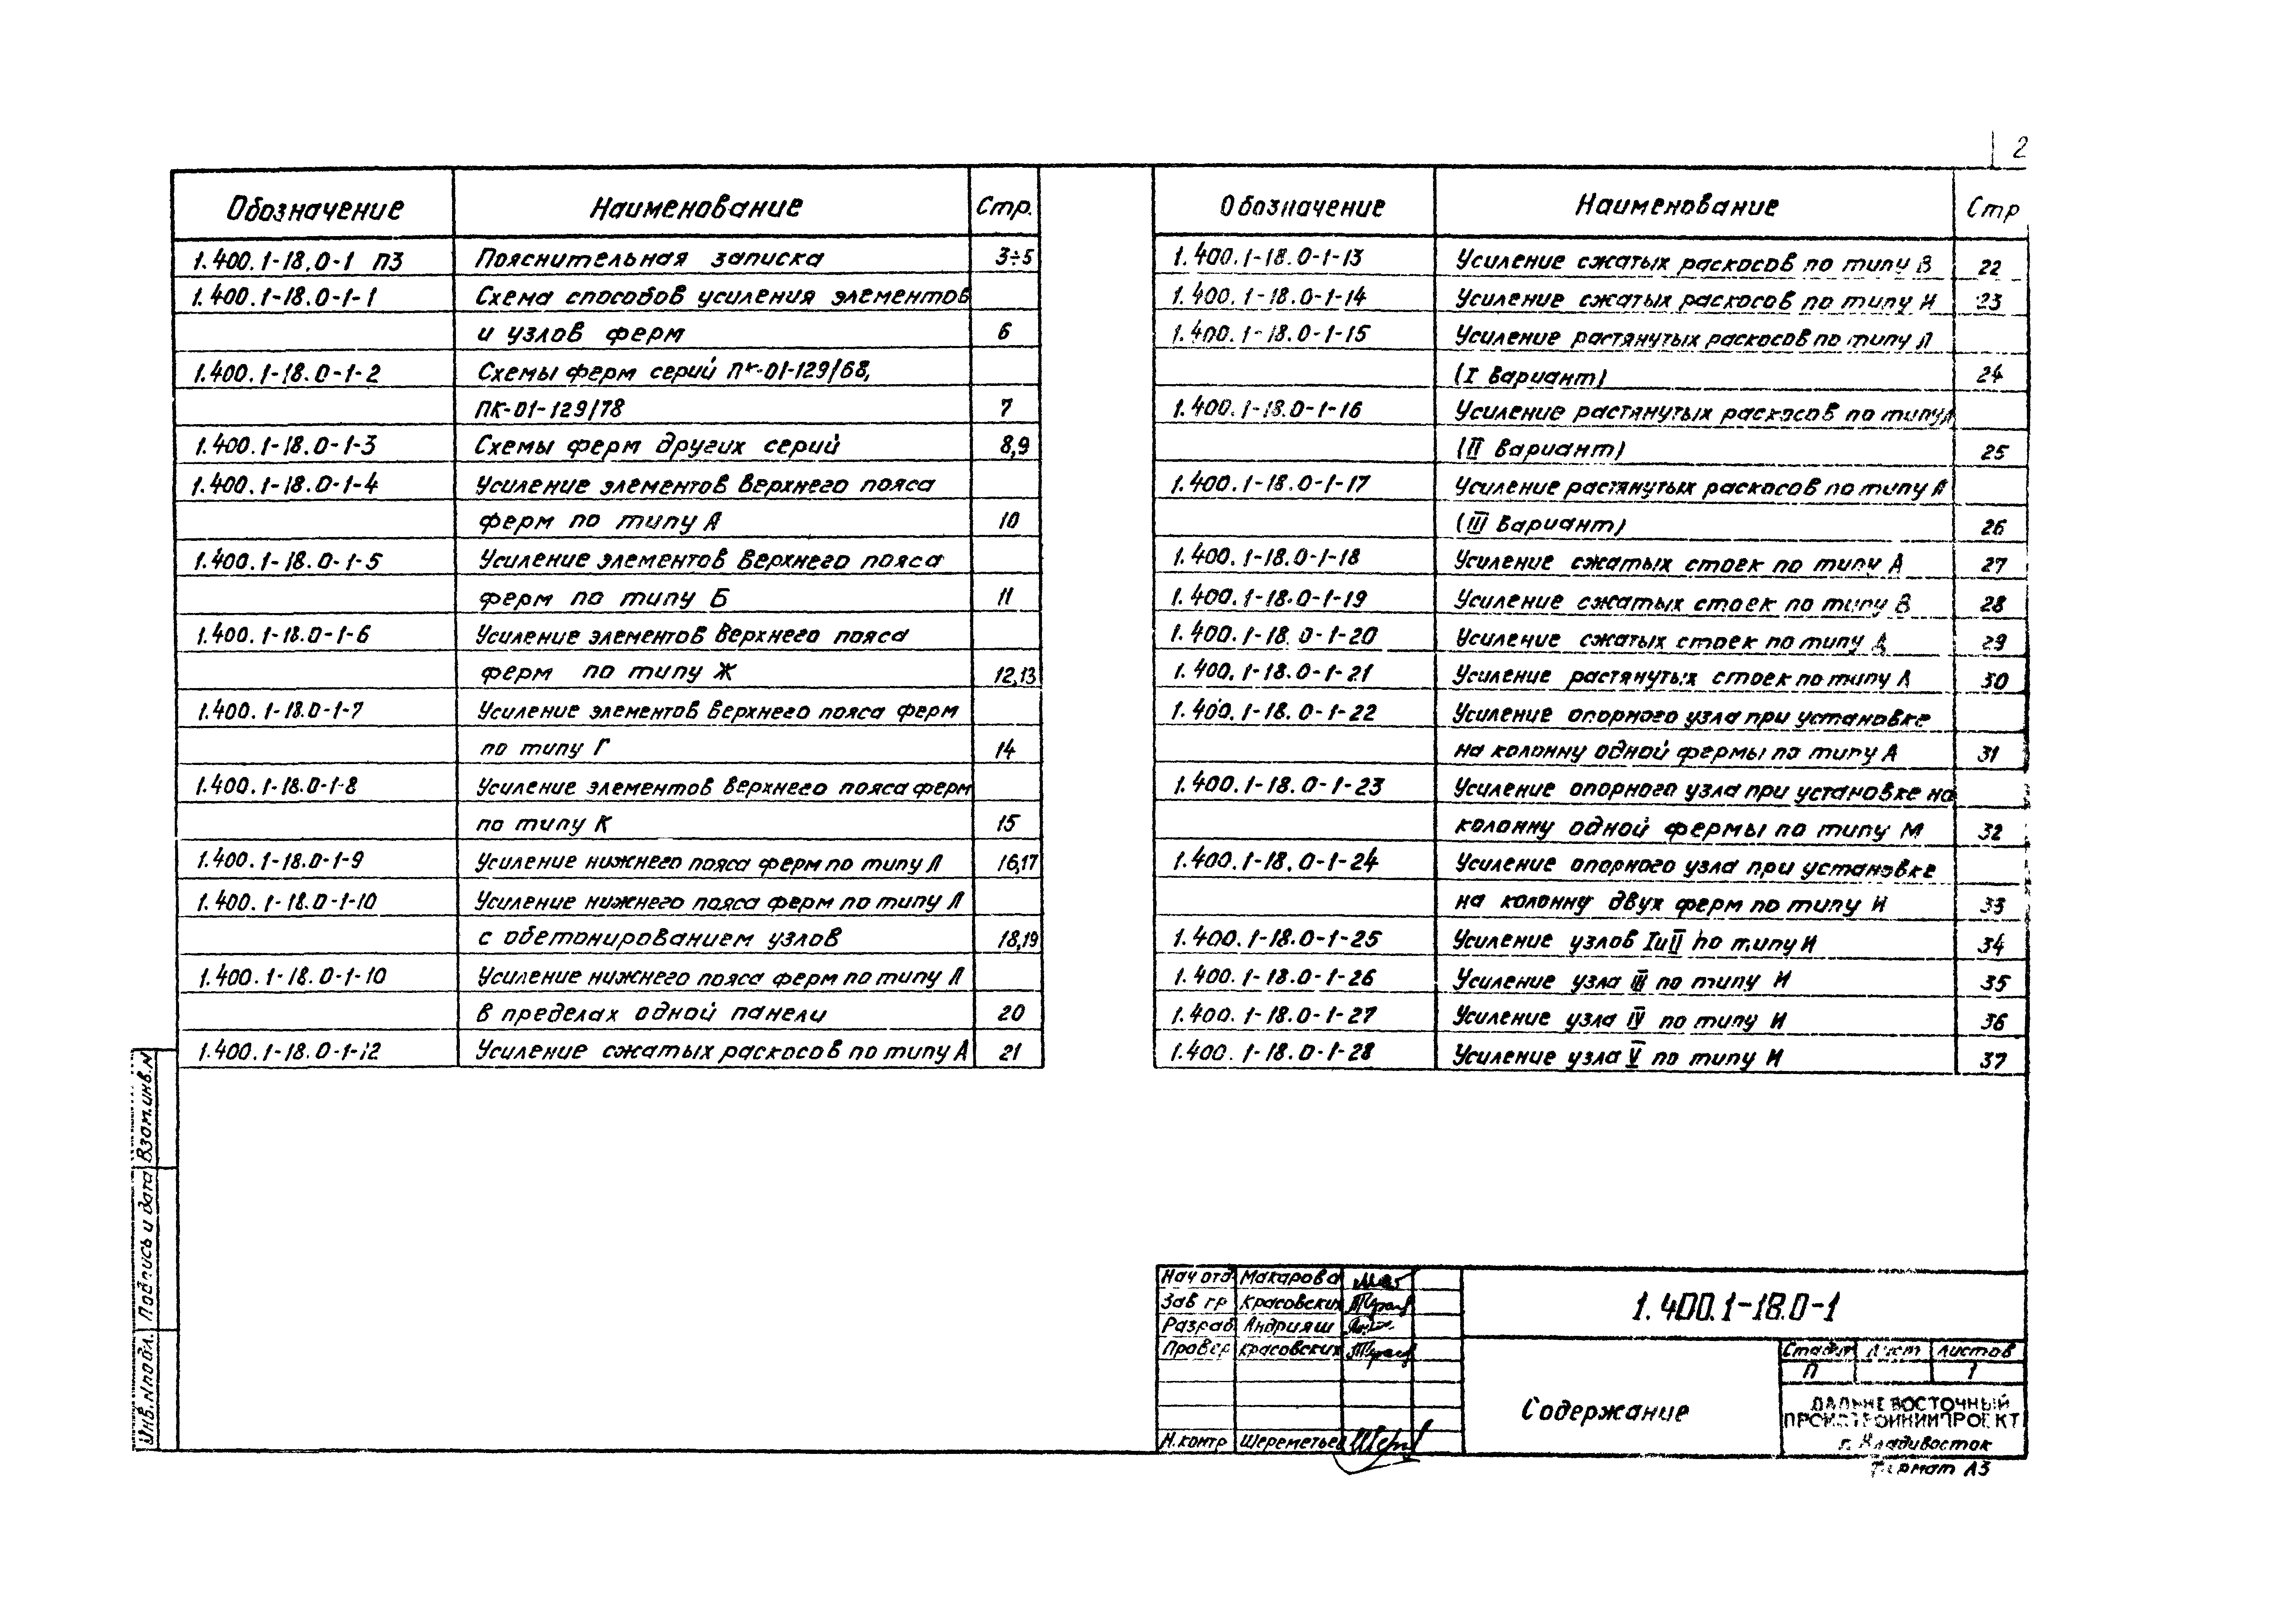 2
Обозначение Наименование Стр.
1.400.1-18.0-1 ПЗ Пояснительная записка 3÷5
1.400.1-18.0-1-1 Схема способов усиления элементов
и узлов ферм 6
1.400.1-18.0-1-2 Схемы ферм серий ПК-01-129/68,
ПК-01-129/78 7
1.400.1-18.0-1-3 Схемы ферм других серий 8,9
1.400.1-18.0-1-4 Усиление элементов верхнего пояса
ферм по типу А 10
1.400.1-18.0-1-5 Усиление элементов верхнего пояса
ферм по типу Б 11
1.400.1-18.0-1-6 Усиление элементов верхнего пояса
ферм по типу Ж 12,13
1.400.1-18.0-1-7 Усиление элементов верхнего пояса ферм
по типу Г 14
1.400.1-18.0-1-8 Усиление элементов верхнего пояса ферм
по типу К 15
1.400.1-18.0-1-9 Усиление нижнего пояса ферм по типу Л 16,17
1.400.1-18.0-1-10 Усиление нижнего пояса ферм по типу Л
с обетонированием узлов 18,19
1.400.1-18.0-1-10 Усиление нижнего пояса ферм по типу Л
в пределах одной панели 20
1.400.1-18.0-1-12 Усиление сжатых раскосов по типу А 21
Обозначение Наименование Стр
1.400.1-18.0-1-13 Усиление сжатых раскосов по типу В 22
1.400.1-18.0-1-14 Усиление сжатых раскосов по типу И 23
1.400.1-18.0-1-15 Усиление растянутых раскосов по типу Л
(I вариант) 24
1.400.1-18.0-1-16 Усиление растянутых раскосов по типу
(II вариант) 25
1.400.1-18.0-1-17 Усиление растянутых раскосов по типу Л
(III вариант) 26
1.400.1-18.0-1-18 Усиление сжатых стоек по типу А 27
1.400.1-18.0-1-19 Усиление сжатых стоек по типу В 28
1.400.1-18.0-1-20 Усиление сжатых стоек по типу Д 29
1.400.1-18.0-1-21 Усиление растянутых стоек по типу Л 30
1.400.1-18.0-1-22 Усиление опорного узла при установке
на колонну одной фермы по типу А 31
1.400.1-18.0-1-23 Усиление опорного узла при установке на
колонну одной фермы по типу М 32
1.400.1-18.0-1-24 Усиление опорного узла при установке
на колонну двух ферм по типу И 33
1.400.1-18.0-1-25 Усиление узлов I и II по типу И 34
1.400.1-18.0-1-26 Усиление узла III по типу И 35
1.400.1-18.0-1-27 Усиление узла IV по типу И 36
1.400.1-18.0-1-28 Усиление узла V по типу И 37
Взам.инв.N
Подпись и дата
Инв.N подл.
Нач отд Макарова
Зав гр Красовских
Разраб. Андрияш
Провер Красовских
Н.контр Шереметьев
1.400.1-18.0-1
Содержание
Стадия Лист Листов
П 1
ДАЛЬНЕВОСТОЧНЫЙ
ПРОМСТРОЙНИИПРОЕКТ
г. Владивосток
Формат А3